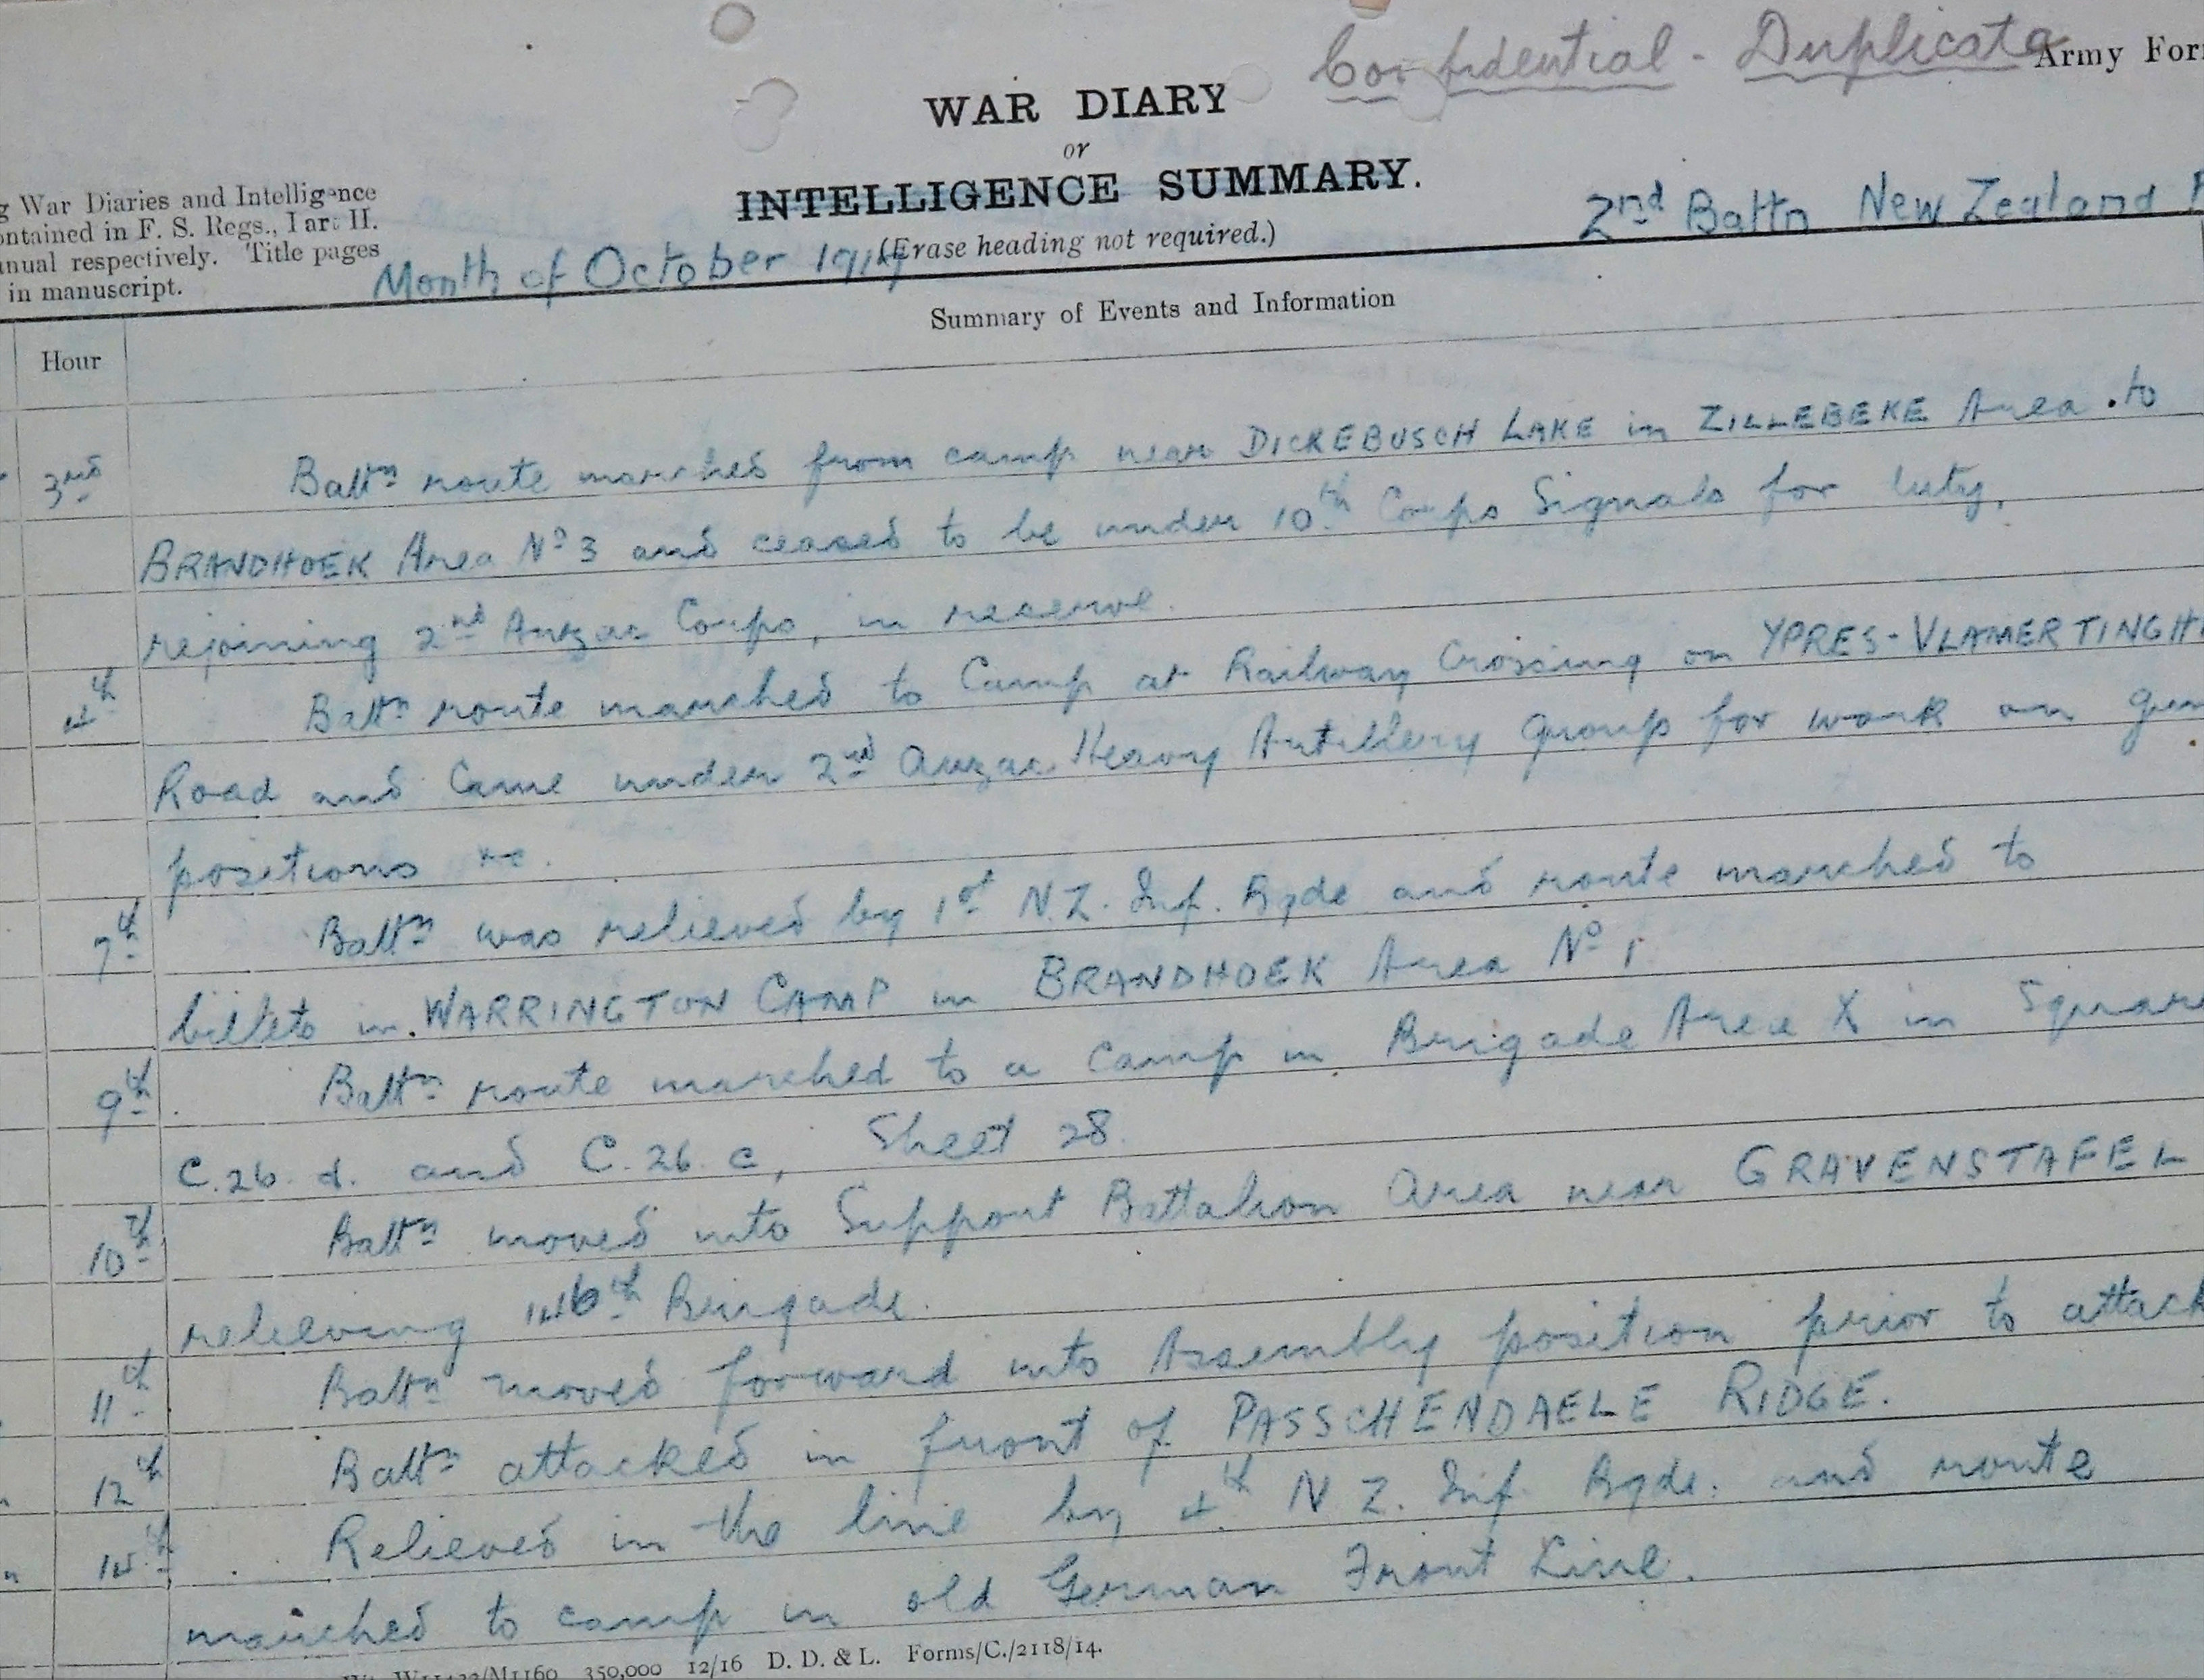 Confidential - Duplicate
Army For
WAR DIARY
or
INTELLIGENCE SUMMARY.
(Erase heading not required.)
2nd Battn New Zealand
g War Diaries and Intelligence
ontained in F. S. Regs., Part II.
anual respectively. Title pages
in manuscript.
Month of October 1917
Summary of Events and Information
Hour
3rd Battn route marched from camp near DICKEBUSCH LAKE in ZILLEBEKE Area to
BRANDHOEK Area No 3 and ceased to be under 10th Corps Signals for duty,
rejoining 2nd Anzac Corps, in reserve.
4th Battn route marched to Camp at Railway Crossing on YPRES-VLAMERTINGH
Road and came under 2nd Anzac Heavy Artillery Group for work on gun
positions &c.
7th Battn was relieved by 1st N.Z. Inf. Bgde and route marched to
billets in WARRINGTON CAMP in BRANDHOEK Area No 1
9th Battn route marched to a camp in Brigade Area X in Square
C.26.d. and C.26.c, Sheet 28.
10th Battn moved into Support Battalion Area near GRAVENSTAFEL
relieving 146th Brigade.
11th Battn moved forward into Assembly position prior to attack
12th Battn attacked in front of PASSCHENDAELE RIDGE.
14th Relieved in the line by 4th N Z. Inf. Bgde. and route
marched to camp in old German Front Line.
350,000 12/16 D. D. & L. Forms/C./2118/14.